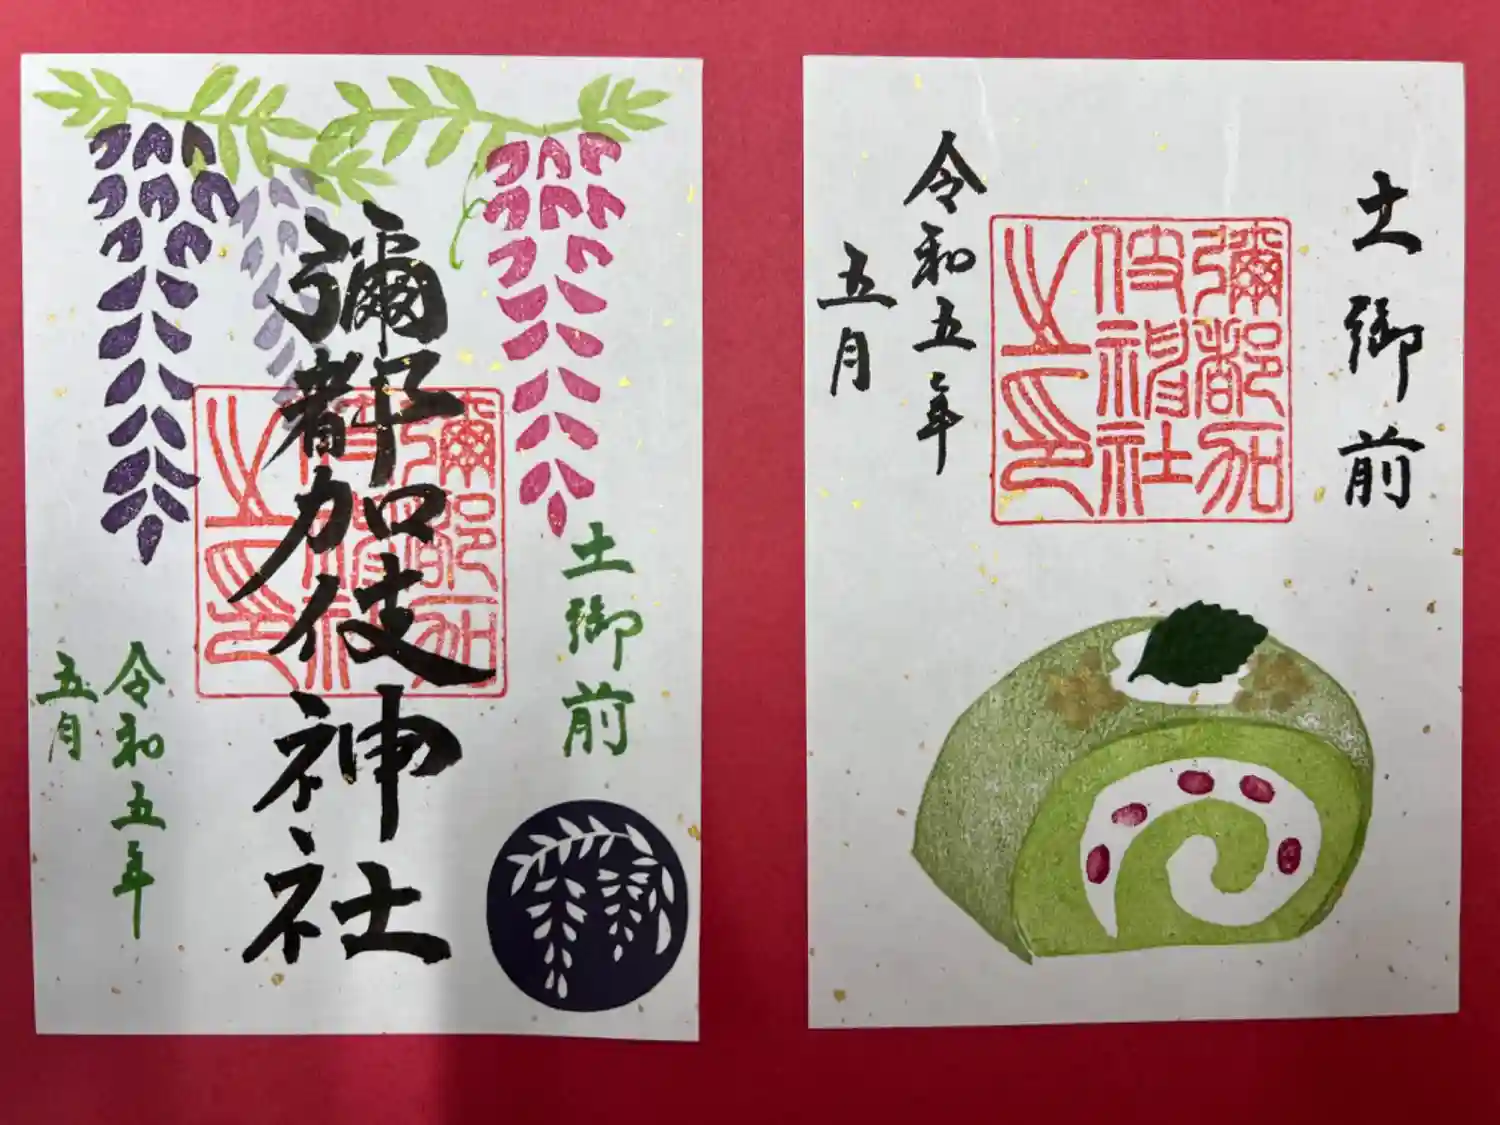 土御前
彌都加伎神社
彌都加
伎神社
之印
令和五年
五月
土御前
彌都加
伎神社
之印
令和五年
五月